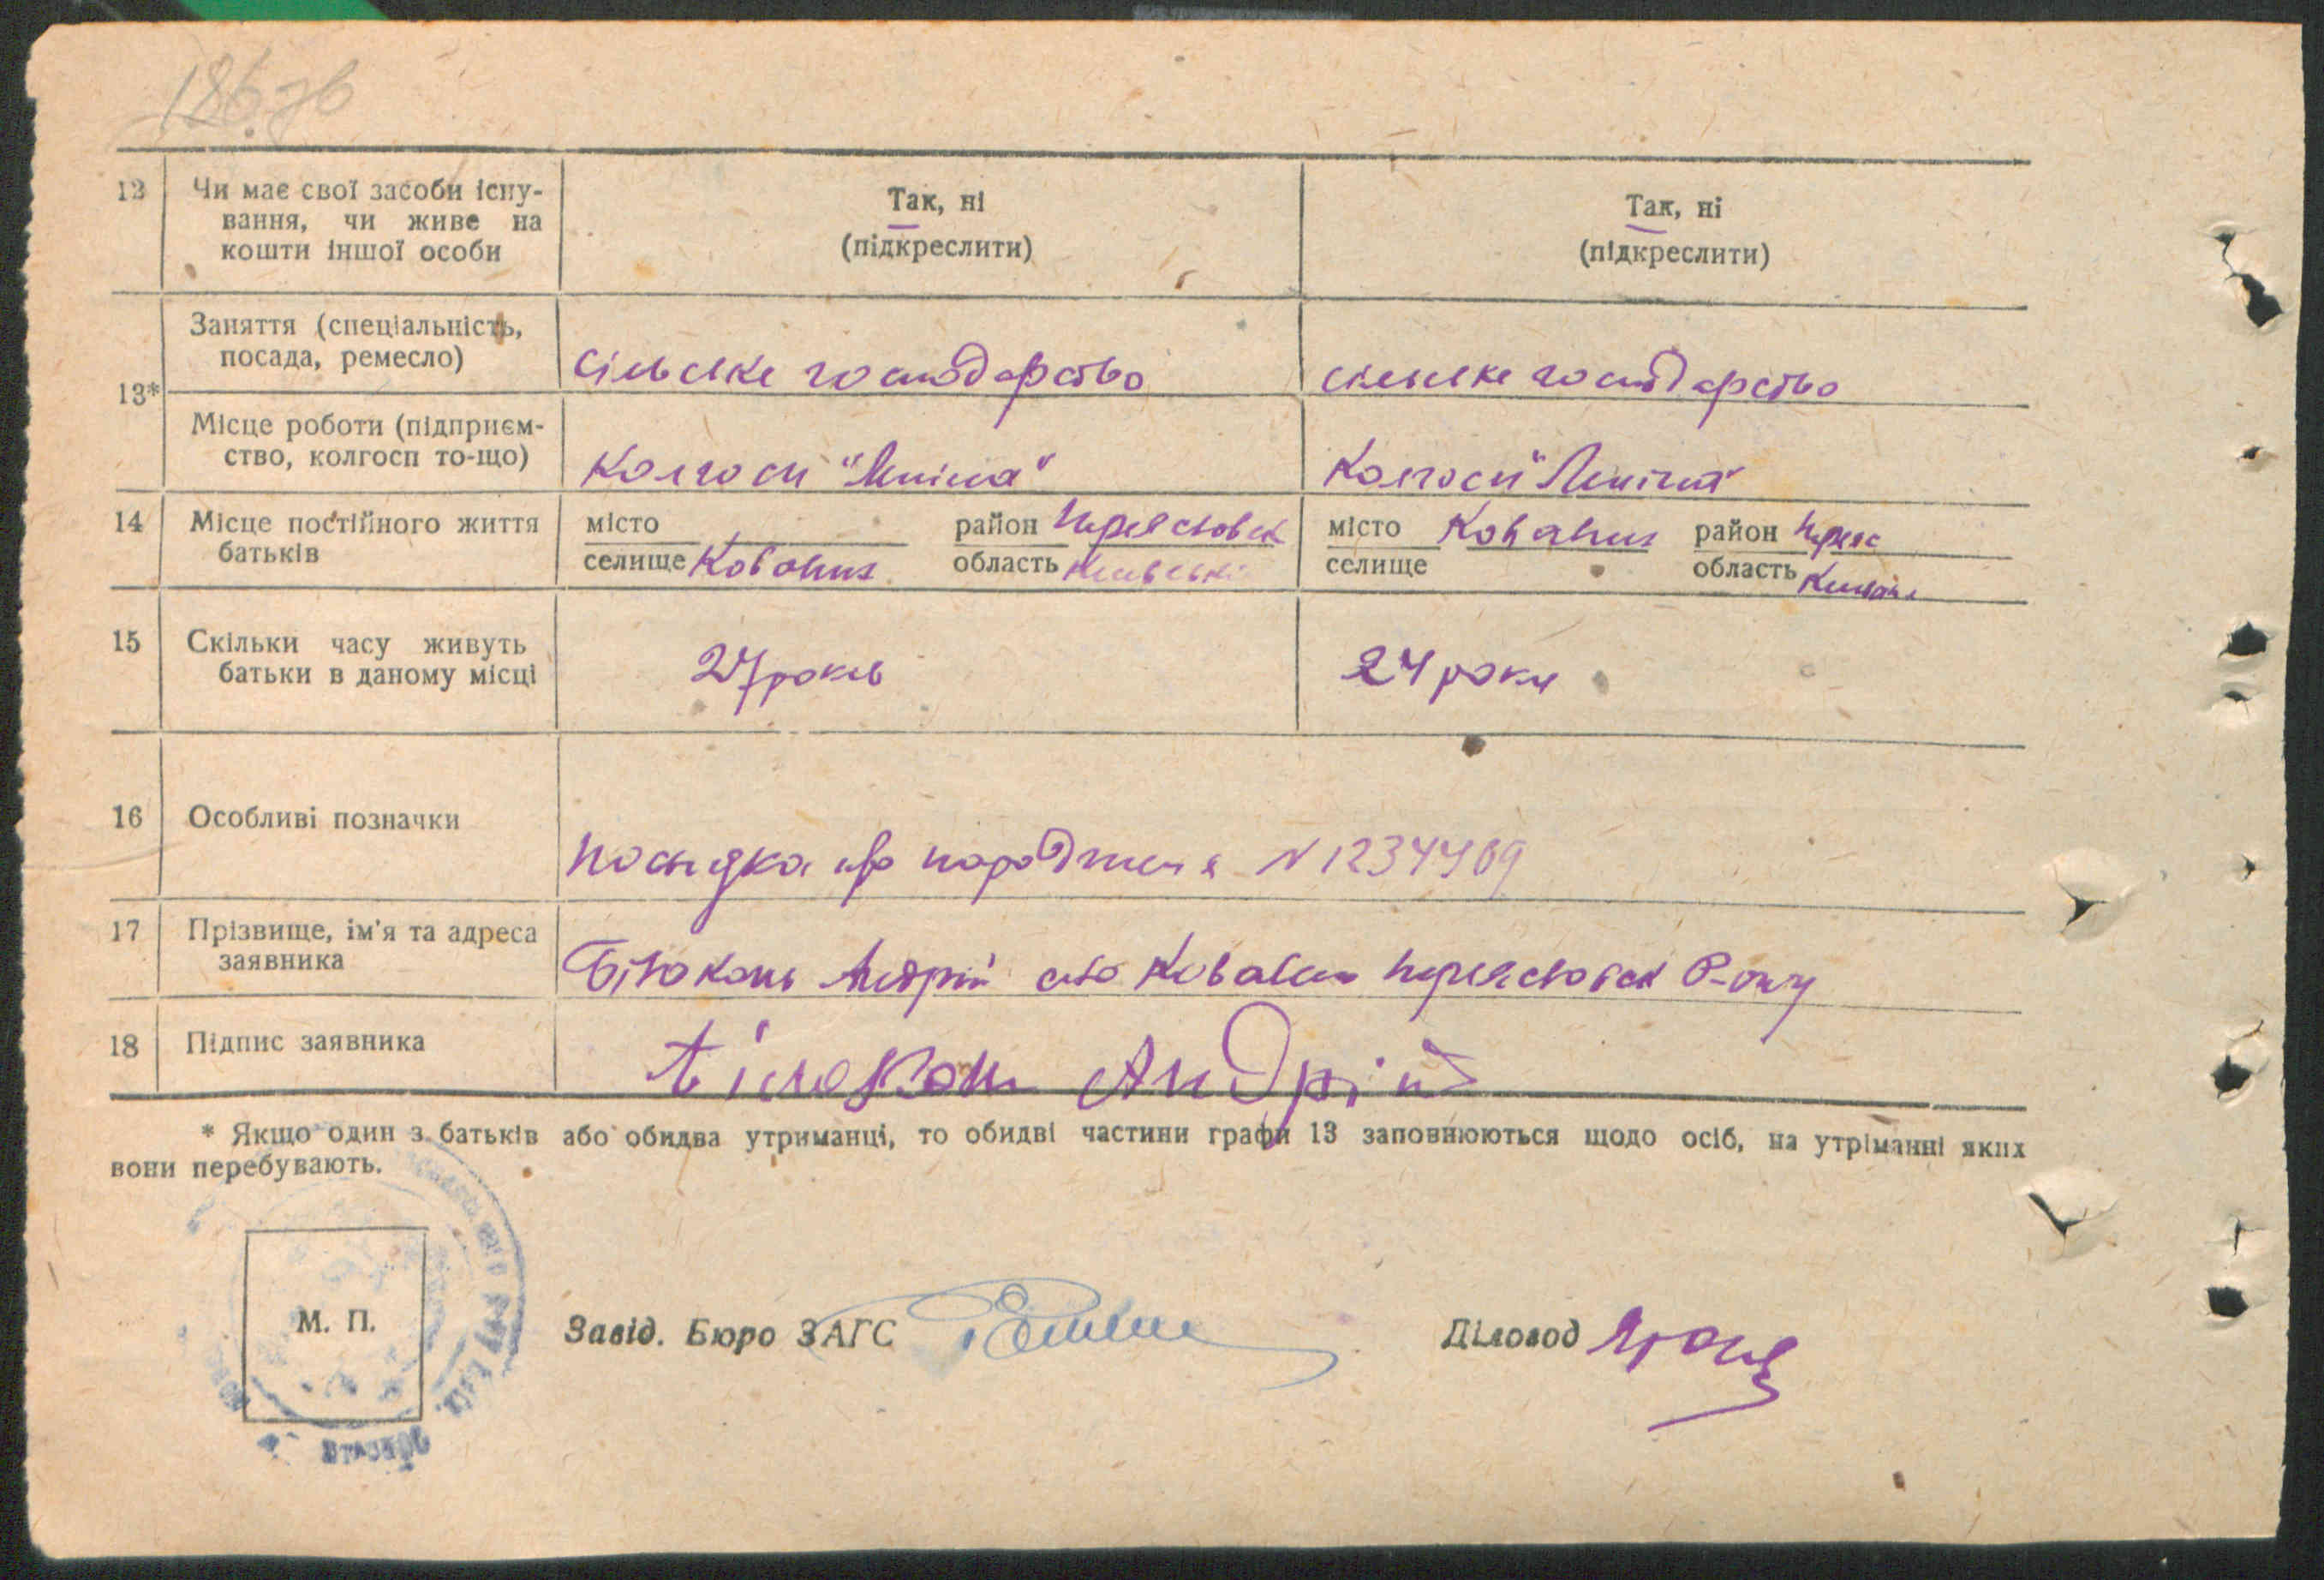 186 зв
12 Чи має свої засоби існу-
вання, чи живе на
кошти іншої особи
Так, ні
(підкреслити)
Так, ні
(підкреслити)
13*
Заняття (спеціальність,
посада, ремесло)
сільське господарство
сільське господарство
Місце роботи (підприєм-
ство, колгосп то-що)
Колгосп "Леніна"
Колгосп "Леніна"
14 Місце постійного життя
батьків
місто район Переяславськ
селище Ковалин область Київська
місто Ковалин район Переяс
селище область Київськ
15 Скільки часу живуть
батьки в даному місці
27 років
24 роки
16 Особливі позначки
посвідка про народження N
17 Прізвище, ім'я та адреса
заявника
Білоконь Андрій село Ковалин Переяславськ р-ону
18 Підпис заявника
Білоконь Андрій
* Якщо один з батьків або обидва утриманці, то обидві частини графи 13 заповнюються щодо осіб, на утріманні яких
вони перебувають.
М. П.
Завід. Бюро ЗАГС
Діловод